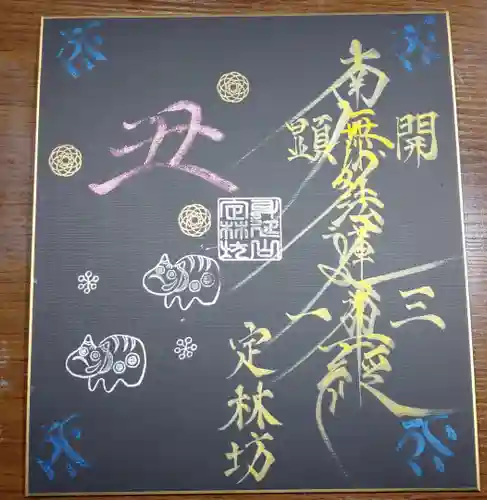 開三
南無妙法蓮華經
顕一
定林坊
身延山
定林坊
丑